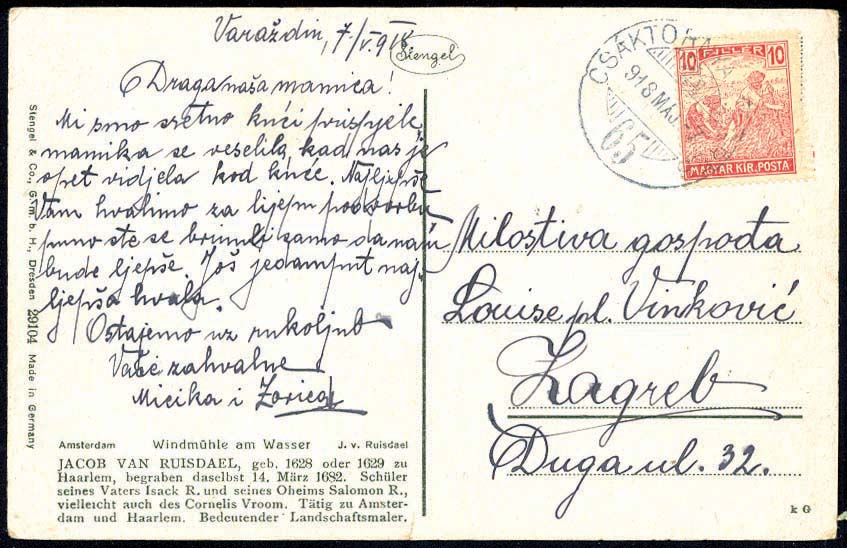 Varaždin, 7/V. 918
Stengel
Draga naša mamica!
Mi smo sretno kući prispjele
mamika se veselila, kad nas je
opet vidjela kod kuće. Najljepše
Vam hvalimo za lijepu podvorbu
puno ste se brinuli samo da nam
bude ljepše. Još jedamput naj-
ljepša hvala.
Ostajemo uz rukoljub
Vaše zahvalne
Micika i Zorica
Stengel & Co., G. m. b. H., Dresden 29104 Made in Germany
Amsterdam Windmühle am Wasser J. v. Ruisdael
JACOB VAN RUISDAEL, geb. 1628 oder 1629 zu
Haarlem, begraben daselbst 14. März 1682. Schüler
seines Vaters Isack R. und seines Oheims Salomon R.,
vielleicht auch des Cornelis Vroom. Tätig zu Amster-
dam und Haarlem. Bedeutender Landschaftsmaler.
CSÁKTORNYA
918 MÁJ
65
10 FILLER 10
MAGYAR KIR. POSTA
Milostiva gospođa
Louise pl. Vinković
Zagreb
Duga ul. 32.
k G